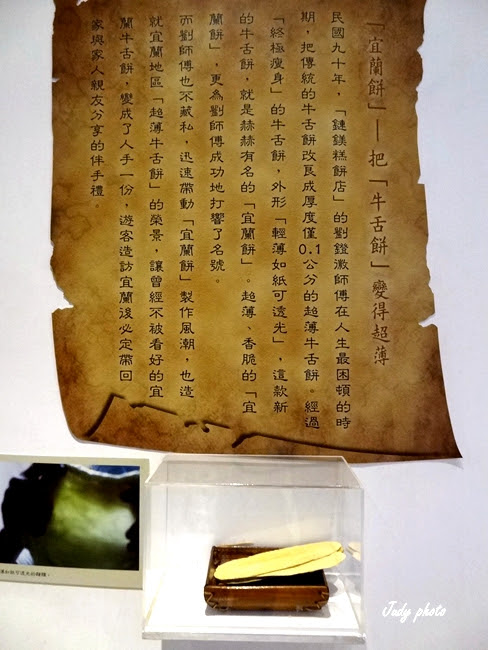 「宜蘭餅」—把「牛舌餅」變得超薄
民國九十年，「鏈鎂糕餅店」的劉鐙徽師傅在人生最困頓的時
期，把傳統的牛舌餅改良成厚度僅0.1公分的超薄牛舌餅。經過
「終極瘦身」的牛舌餅，外形「輕薄如紙可透光」，這款新
的牛舌餅，就是赫赫有名的「宜蘭餅」。超薄、香脆的「宜
蘭餅」，更為劉師傅成功地打響了名號。
而劉師傅也不藏私，迅速帶動「宜蘭餅」製作風潮，也造
就宜蘭地區「超薄牛舌餅」的榮景，讓曾經不被看好的宜
蘭牛舌餅，變成了人手一份，遊客造訪宜蘭後必定帶回
家與家人親友分享的伴手禮。
Judy photo